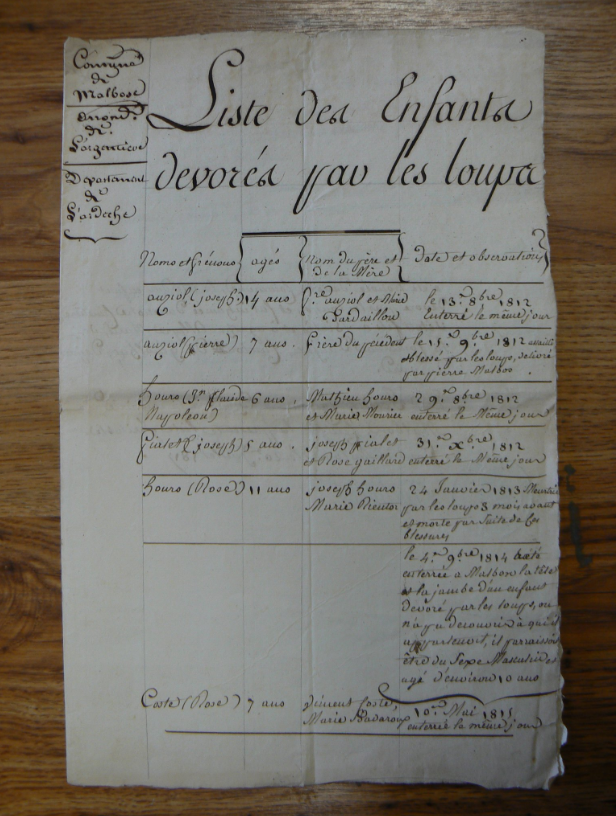 Commune
de
Malbosc
arrond.t
de
L'argentiere
Departement
de
L'ardeche
Liste des Enfants
devorés par les loups
Noms et Prénoms
agés
Nom du père et
de la Mère
date et observations
auziol (joseph) 14 ans
P.re auziol et Marie
Gardaillou
le 13.e 8.bre 1812
Enterré le même jour
auziol (pierre) 7 ans.
frère du précédent
le 15.e 9.bre 1812
et blessé par les loups, délivré
par pierre Malbos
hours (jn. Claude 6 ans,
Napoleon)
Mathieu hours
et Marie Mourier
29.e 8.bre 1812
enterré le Même jour
fialet (joseph) 5 ans.
joseph fialet
et Rose gaillard
31.e X.bre 1812
enterré le Même jour
hours (Rose) 11 ans
joseph hours
Marie
24 Janvier 1813
par les loups 3 mois avant
et morte par Suite de Ces
blessures
le 4.e 9.bre 1814 a été
enterrée a Malbosc la tête
et la jambe d'un enfant
devoré par les loups, on
n'a pu decouvrir a qui il
appartenoit, il parraissoit
être du Sexe Masculin et
agé d'environ 10 ans
Coste (Rose) 7 ans
vincent Coste,
Marie
10.e Mai 1815
enterrée le même jour